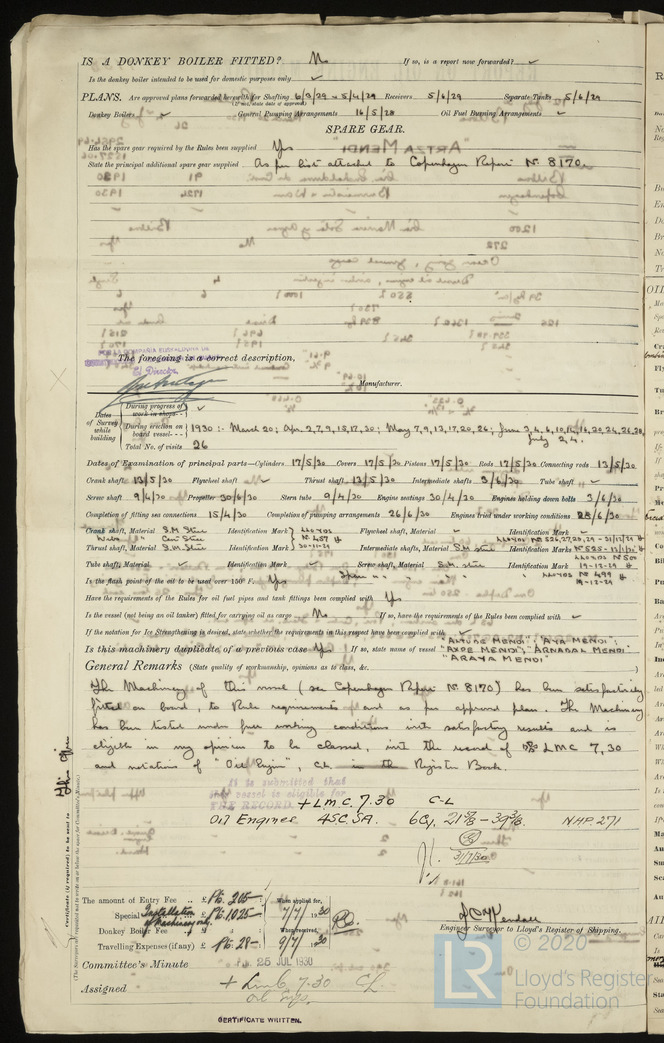 IS A DONKEY BOILER FITTED? No If so, is a report now forwarded? ✓
Is the donkey boiler intended to be used for domestic purposes only ✓
PLANS. Are approved plans forwarded herewith for Shafting 6/3/29 - 5/4/29 Receivers 5/6/29 Separate Tanks 5/6/29
(If not, state date of approval)
Donkey Boilers ✓ General Pumping Arrangements 16/5/28 Oil Fuel Burning Arrangements ✓
SPARE GEAR.
Has the spare gear required by the Rules been supplied Yes
State the principal additional spare gear supplied As per list attached to Copenhagen Report No 8170.
The foregoing is a correct description,
El Director,
Manufacturer.
Dates of Survey while building
During progress of work in shops - - ✓
During erection on board vessel - - - 1930 :- March 20; Apr 2,7,9,15,17,30; May 7,9,13,17,20,26; June 3,4,6,10,14,16,20,24,26,28,
July 2,4.
Total No. of visits 26
Dates of Examination of principal parts—Cylinders 17/5/30 Covers 17/5/30 Pistons 17/5/30 Rods 17/5/30 Connecting rods 13/5/30
Crank shaft 13/5/30 Flywheel shaft ✓ Thrust shaft 13/5/30 Intermediate shafts 3/6/30 Tube shaft ✓
Screw shaft 9/4/30 Propeller 30/6/30 Stern tube 9/4/30 Engine seatings 30/4/30 Engines holding down bolts 3/6/30
Completion of fitting sea connections 15/4/30 Completion of pumping arrangements 26/6/30 Engines tried under working conditions 28/6/30
Crank shaft, Material S.M. Steel Identification Mark LLOYDS Flywheel shaft, Material ✓ Identification Mark ✓
Thrust shaft, Material S.M. Steel Identification Mark 30-11-29 Intermediate shafts, Material S.M. steel Identification Marks
Tube shaft, Material ✓ Identification Mark ✓ Screw shaft, Material S.M. steel Identification Mark 19-12-29
Is the flash point of the oil to be used over 150° F. Yes LLOYDS No 499
Have the requirements of the Rules for oil fuel pipes and tank fittings been complied with Yes
Is the vessel (not being an oil tanker) fitted for carrying oil as cargo No If so, have the requirements of the Rules been complied with ✓
If the notation for Ice Strengthening is desired, state whether the requirements in this respect have been complied with ✓
Is this machinery duplicate of a previous case Yes If so, state name of vessel "ALTUBE MENDI"; "AYA MENDI";
"AXPE MENDI"; "ARNABAL MENDI"
"ARAYA MENDI"
General Remarks (State quality of workmanship, opinions as to class, &c.
The Machinery of this vessel (see Copenhagen Report No 8170) has been satisfactorily
fitted on board, to Rule requirements and as per approved plan. The Machinery
has been tested under full working conditions with satisfactory results and is
eligible in my opinion to be classed, with the record of LMC 7,30
and notations of "Oil Engine", CL in the Register Book.
It is submitted that
this vessel is eligible for
THE RECORD. + L.M.C. 7.30 C-L
Oil Engines 4SC.SA. 6Cy. 21 5/8 - 39 3/8. NHP. 271
31/7/30
The amount of Entry Fee .. £ Pts. 205- When applied for,
Special Installation of Machinery only. £ Pts. 1025- 7/7/1930
Donkey Boiler Fee .. £ When received,
Travelling Expenses (if any) £ Pts. 28- 9/7/30
Engineer Surveyor to Lloyd's Register of Shipping.
Committee's Minute 25 JUL 1930
Assigned + LMC 7.30 CL
Oil Engs.
CERTIFICATE WRITTEN.
© 2020
LR Lloyd's Register
Foundation